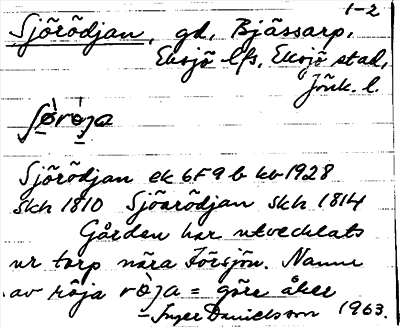 1-2
Sjörödjan, gd, Bjässarp,
Eksjö lfs, Eksjö stad,
Jönk. l.
Sjörödjan ek 6F9b kb 1928
skh 1810 Sjöarödjan skh 1814
Gården har utvecklats
ur torp nära Försjön. Namn
av röja = göra åker
- Inger Danielsson 1963.